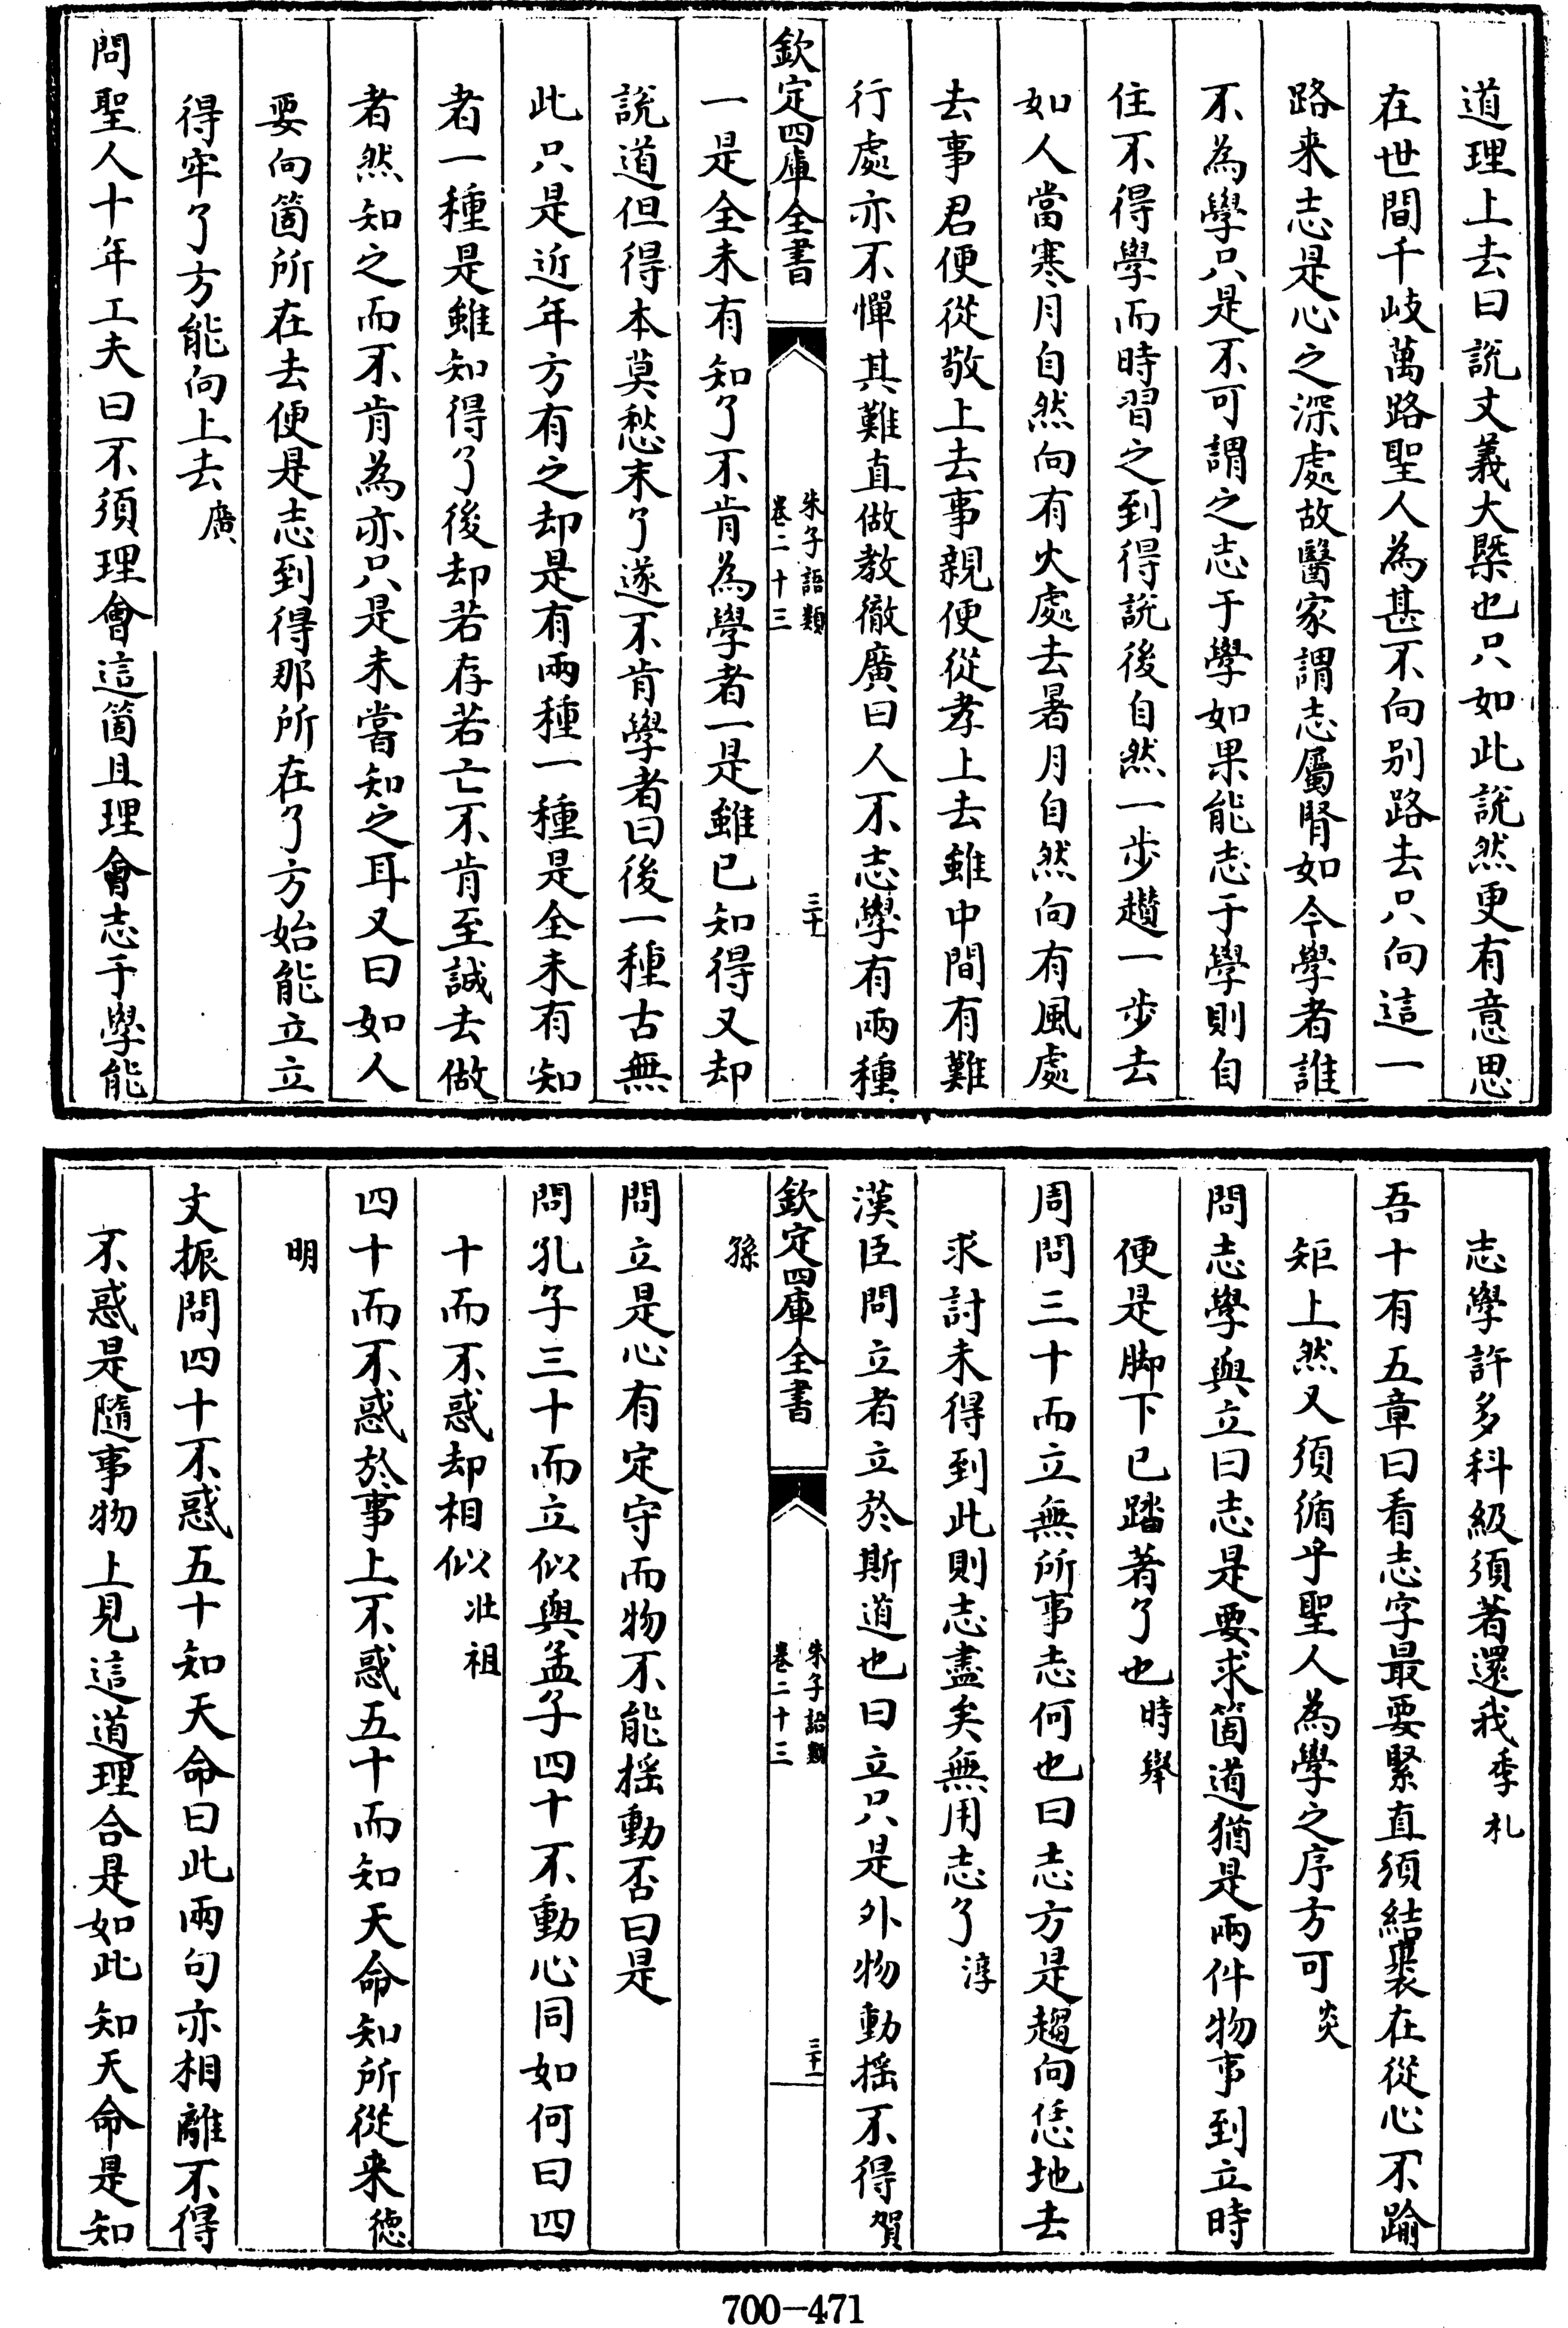 道理上去曰說文義大槩也只如此說然更有意思
在世間千岐萬路聖人為甚不向别路去只向這一
路来志是心之深處故醫家謂志屬腎如今學者誰
不為學只是不可謂之志于學如果能志于學則自
住不得學而時習之到得說後自然一步趲一步去
如人當寒月自然向有火處去暑月自然向有風處
去事君便從敬上去事親便從孝上去雖中間有難
行處亦不憚其難直做教徹廣曰人不志學有兩種
欽定四庫全書
朱子語類
卷二十三
三十
一是全未有知了不肯為學者一是雖已知得又却
說道但得本莫愁末了遂不肯學者曰後一種古無
此只是近年方有之却是有兩種一種是全未有知
者一種是雖知得了後却若存若亡不肯至誠去做
者然知之而不肯為亦只是未嘗知之耳又曰如人
要向箇所在去便是志到得那所在了方始能立立
得牢了方能向上去廣
問聖人十年工夫曰不須理會這箇且理會志于學能
志學許多科級須著還我季札
吾十有五章曰看志字最要緊直須結裹在從心不踰
矩上然又須循乎聖人為學之序方可炎
問志學與立曰志是要求箇道猶是兩件物事到立時
便是脚下已踏著了也時舉
周問三十而立無所事志何也曰志方是趨向恁地去
求討未得到此則志盡矣無用志了淳
漢臣問立者立於斯道也曰立只是外物動揺不得賀
欽定四庫全書
朱子語類
卷二十三
三十一
孫
問立是心有定守而物不能揺動否曰是
問孔子三十而立似與孟子四十不動心同如何曰四
十而不惑却相似壮祖
四十而不惑於事上不惑五十而知天命知所從来德
明
文振問四十不惑五十知天命曰此兩句亦相離不得
不惑是隨事物上見這道理合是如此知天命是知
700-471